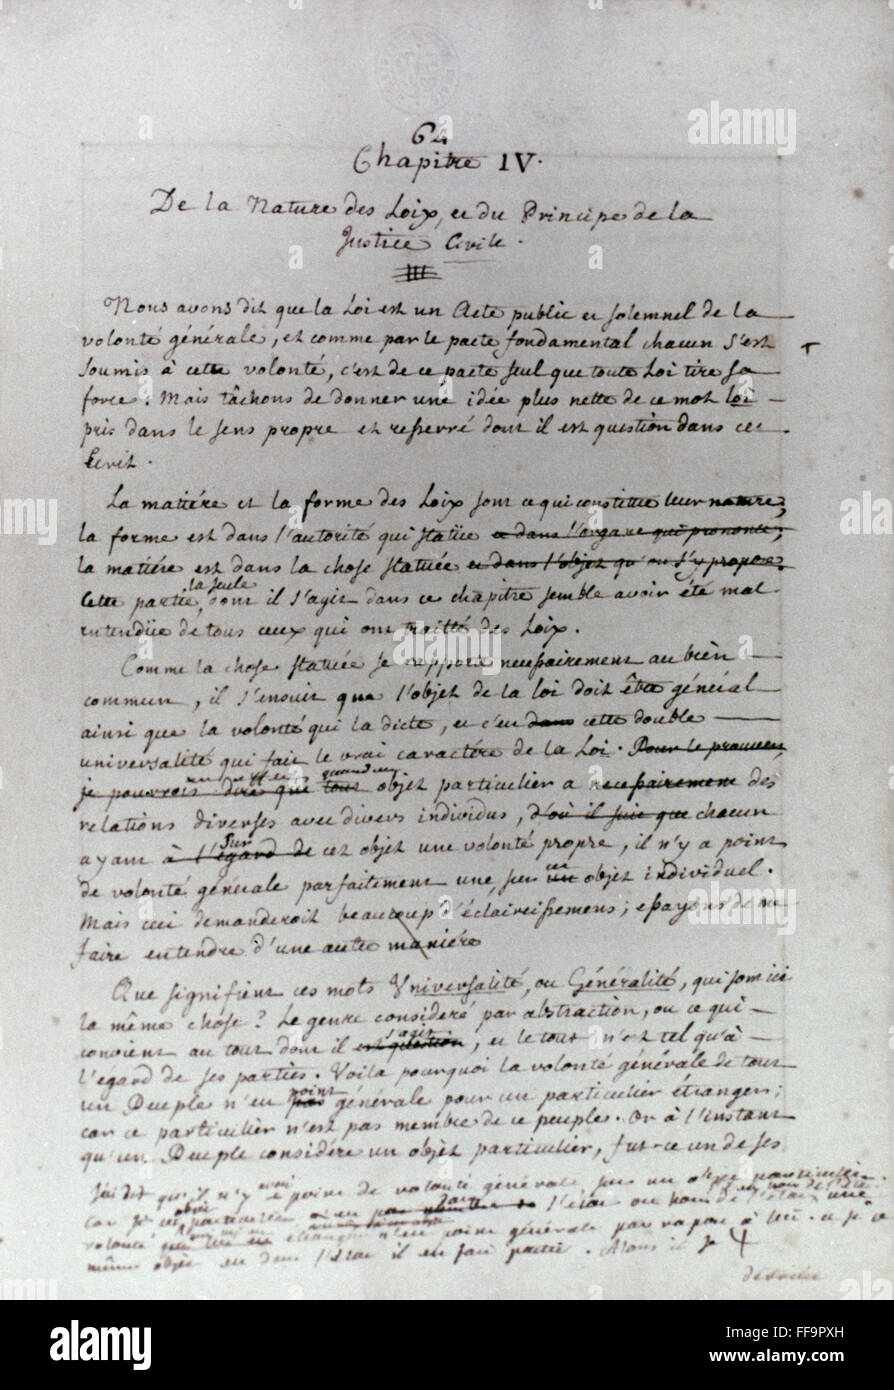 64
Chapitre IV.
De la Nature des Loix, et du Principe de la
Justice Civile.
Nous avons dit que la Loi est un Acte public et solemnel de la
volonté générale, et comme par le pacte fondamental chacun s'est
soumis à cette volonté, c'est de ce pacte seul que toute Loi tire sa
force. Mais tâchons de donner une idée plus nette de ce mot loi
pris dans le sens propre et resserré dont il est question dans cet
Ecrit.
La matiére et la forme des Loix sont ce qui constitue leur nature;
la forme est dans l'autorité qui statüe et dans l'organe qui prononce;
la matiére est dans la chose statuée et dans l'objet qu'on s'y propose.
la seule
Cette partie, dont il s'agit dans ce chapitre semble avoir été mal
entendüe de tous ceux qui ont traitté des Loix.
Comme la chose statuée se rapporte necessairement au bien
commun, il s'ensuit que l'objet de la loi doit être général
ainsi que la volonté qui la dicte, et c'est dans cette double
universalité qui fait le vrai caractére de la Loi. Pour le prouver,
en effet quand un
je pourrois dire que tout objet particulier a necessairement des
relations diverses avec divers individus, d'où il suit que chacun
sur
ayant à l'égard de cet objet une volonté propre, il n'y a point
cet
de volonté générale parfaitement une sur un objet individuel.
Mais ceci demanderoit beaucoup d'éclaircissemens; essayons de me
faire entendre d'une autre maniére
Que signifient ces mots Universalité, ou Généralité, qui sont ici
la même chose? Le genre consideré par abstraction, ou ce qui
s'agit
convient au tout dont il est question, et le tout n'est tel qu'à
l'egard de ses parties. Voila pourquoi la volonté générale de tout
point
un Peuple n'est pas générale pour un particulier étranger;
car ce particulier n'est pas membre de ce peuple. Or à l'instant
qu'un Peuple considére un objet particulier, fut-ce un de ses
J'ai dit qu'il n'y avoit point de volonté générale sur un objet particulier.
car cet objet particulier est dans l'état ou hors de l'état
volonté étrangere n'est point générale par rapport à lui. et si ce
même objet est dans l'état il en fait partie. Alors il se
alamy
Image ID: FF9PXH
www.alamy.com